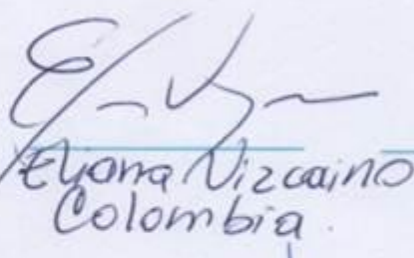 Eliana Vizcaino
Colombia.